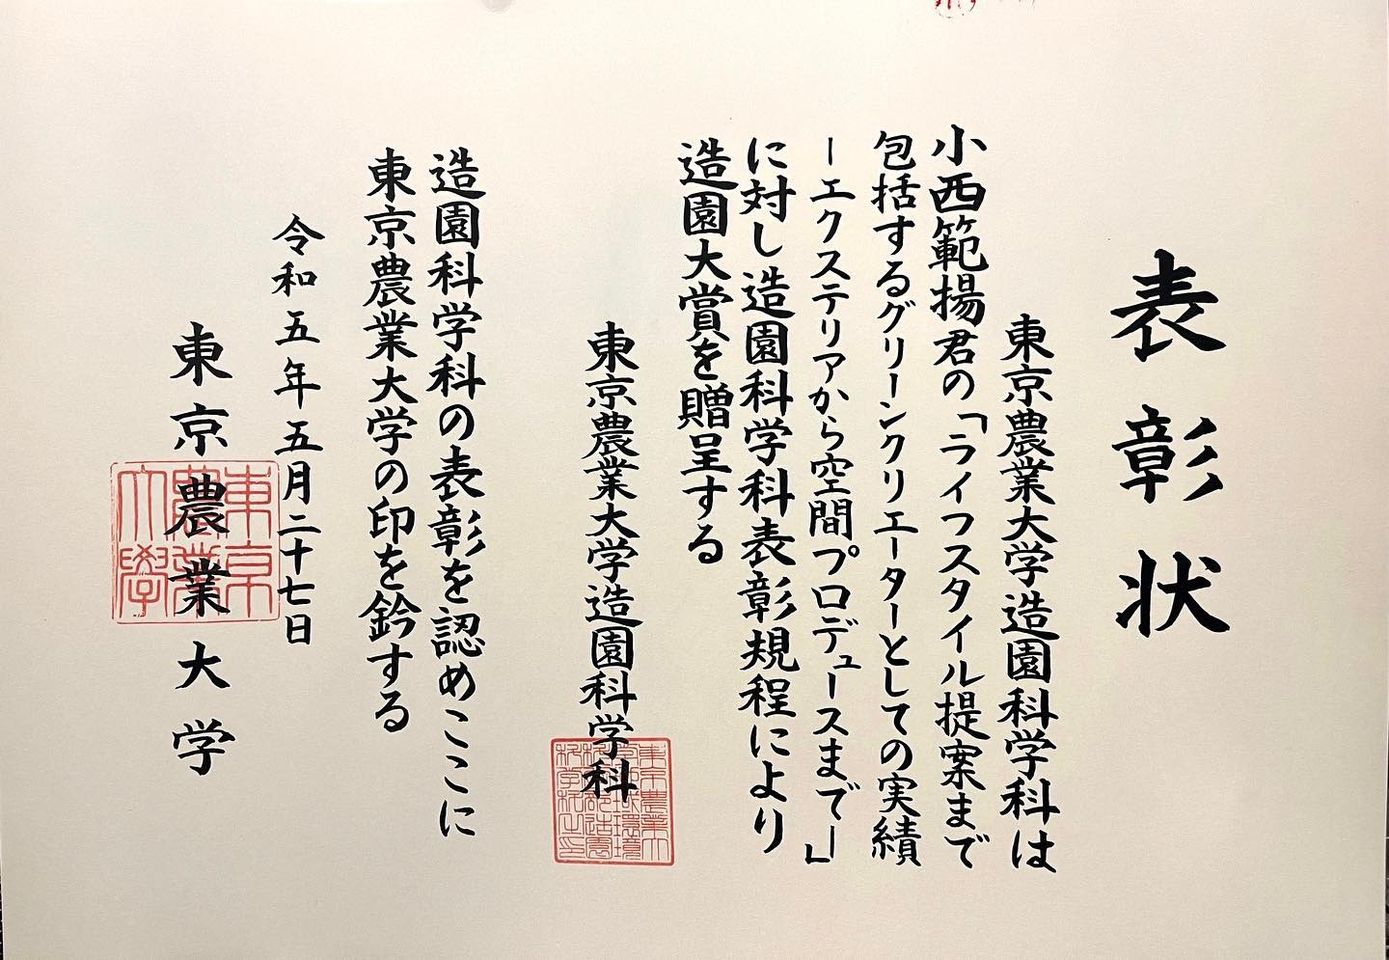 表彰状
東京農業大学造園科学科は
小西範揚君の「ライフスタイル提案まで
包括するグリーンクリエーターとしての実績
ーエクステリアから空間プロデュースまでー」
に対し造園科学科表彰規程により
造園大賞を贈呈する
東京農業大学造園科学科
造園科学科の表彰を認めここに
東京農業大学の印を鈐する
令和五年五月二十七日
東京農業大学
東京
農業
大學